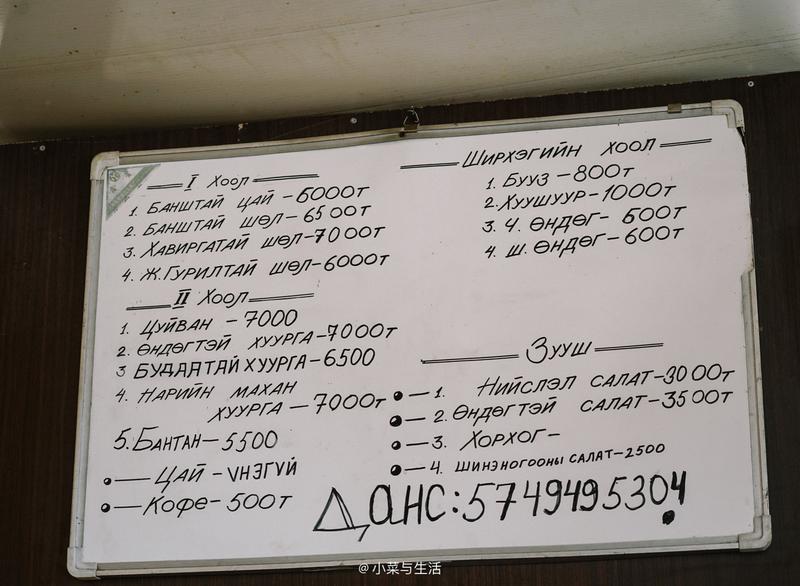 I Хоол
1. Банштай цай - 6000т
2. Банштай шөл - 6500т
3. Хавиргатай шөл - 7000т
4. Ж.Гурилтай шөл - 6000т
II Хоол
1. Цуйван - 7000
2. Өндөгтэй хуурга - 7000т
3 Будаатай хуурга - 6500
4. Нарийн махан
хуурга - 7000т
5. Бантан - 5500
Цай - үнэгүй
Кофе - 500т
Ширхэгийн хоол
1. Бууз - 800т
2. Хуушуур - 1000т
3. Ч. Өндөг - 600т
4. Ш. Өндөг - 600т
Зууш
1. Нийслэл салат - 3000т
2. Өндөгтэй салат - 3500т
3. Хорхог -
4. Шинэ ногооны салат - 2500
Данс: 5749495304
@小菜与生活